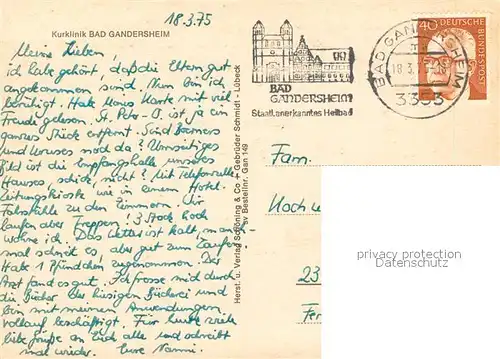 18.3.75
Kurklinik BAD GANDERSHEIM
Meine Lieben,
ich habe gehört, daß die Eltern gut
angekommen sind. Nun bin ich
beruhigt. Habe Karte mit viel
Freude gelesen. St. Peter-O. ist ja ein
ganzes Stück entfernt. Sind
und noch da? Umseitiges
Bild ist die Empfangshalle unseres
Hauses, schick, nicht? Mit Telefonzelle
Zeitungskiosk wie in einem Hotel.
Fahrstühle zu den Zimmern. Wir
laufen aber Treppen! 3. Stock hoch
wohne ich. Das Wetter ist kalt, manch-
mal schneit es, aber gut zum Laufen.
Habe 1 Pfündchen zugenommen. Der
Arzt fand es gut. Ich fresse mich durch
die Bücher der hiesigen Bücherei und
bin mit meinen Anwendungen
vollauf beschäftigt. Für heute viele
liebe Grüße an Euch alle und schreibt
mal wieder. Eure Nanni.
Herst. u. Verlag Schöning & Co + Gebrüder Schmidt - Lübeck
sv Bestellnr. Gan 149
BAD
GANDERSHEIM
Staatl. anerkanntes Heilbad
BAD GANDERSHEIM
18.3.75
3353
40
DEUTSCHE BUNDESPOST
Fam.
Hoch
23
privacy protection
Datenschutz